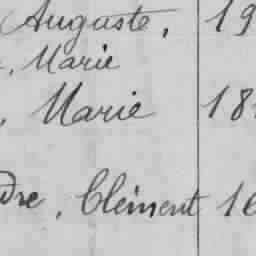 Auguste, 19
, Marie
, Marie 18
dre, Clément 16